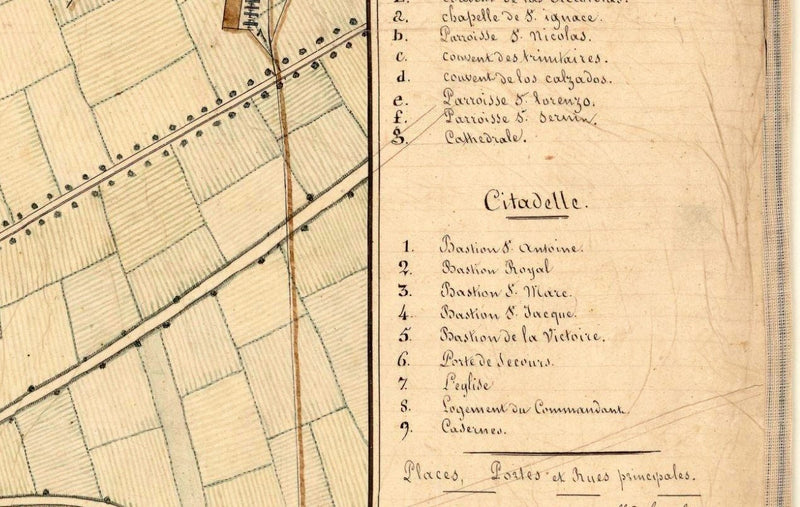 a. chapelle de St. ignace.
b. Parroisse St. Nicolas.
c. couvent des trinitaires.
d. couvent de los calzados.
e. Parroisse St. lorenzo.
f. Parroisse St. Sernin.
g. Cathedrale.
Citadelle.
1. Bastion St. Antoine.
2. Bastion Royal
3. Bastion St. Marc.
4. Bastion St. Jacque.
5. Bastion de la Victoire.
6. Porte de Secours.
7. L'eglise
8. Logement du Commandant.
9. Casernes.
Places, Portes et Rues principales.